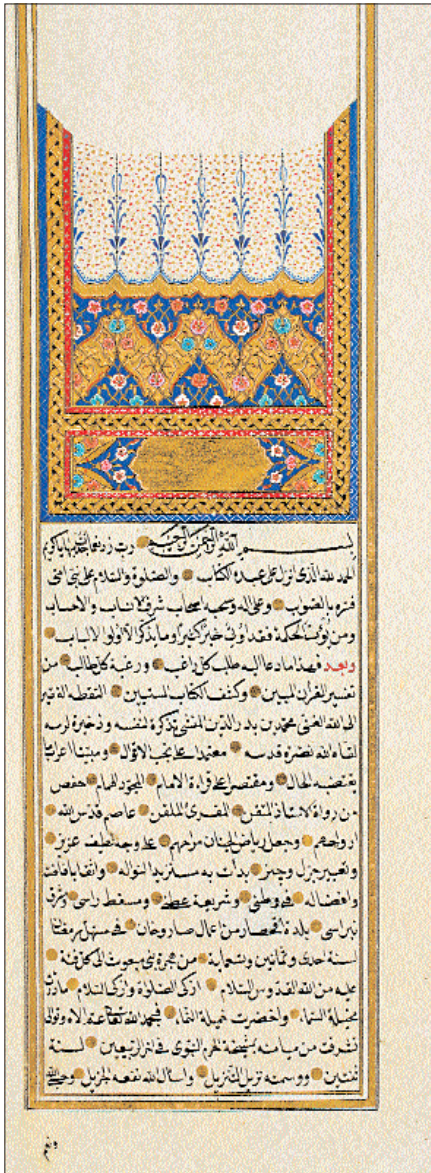 بسم الله الرحمن الرحيم رب زدني علما
الحمد لله الذي انزل على عبده الكتاب والصلوة والسلام على نبي
بالصواب وعلى اله وصحبه اصحاب شرف الانساب والاحساب
ومن يؤت الحكمة فقد اوتي خيرا كثيرا وما يذكر الا اولوا الالباب
وبعد فهذا ما دعا اليه طلب كل راغب ورغبة كل طالب من
تفسير القران المبين وكشف الكتاب المستبين التقطه الفقير
الى الله الغني محمد بن بدر الدين المنشي تذكرة لنفسه وذخيرة لرمسه
لقاه الله نضرة قدسه معتمدا على نخب الاقوال ومبينا
يقتضيه الحال ومقتصرا على قراءة الامام المجود الهمام حفص
من رواة الاستاذ المتقن المقرئ الملقن عاصم قدس الله
ارواحهم وجعل رياض الجنان مراحهم على وجه لطيف عزيز
وتعبير جزل وجيز بدأت به مستزيدا نواله
وافضاله في وطني وشريعة عطني ومسقط راسي
نبراسي بلدة اقحصار من اعمال صاروخان في مستهل
لسنة احدى وثمانين وتسعماية من هجرة نبي مبعوث الى كل فئة
عليه من الله القدوس السلام ازكى الصلوة وازكى السلام
مخيلة السماء واخضرت خميلة
تشرفت من ميامنه بمشيخة الحرم النبوي في اخر الربيعين لسنة
ثنتين ووسمته نزيل التنزيل واسأل الله نفعه الجزيل